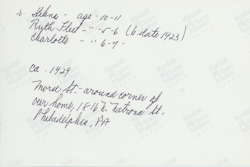 Helene - age 10-11
Ruth Fleet - " - 5-6 (b. date 1923)
Charlotte - " - 6-7-
ca. 1929
St. around corner of
our home, 1816 N. Natrona St.
Philadelphia, PA